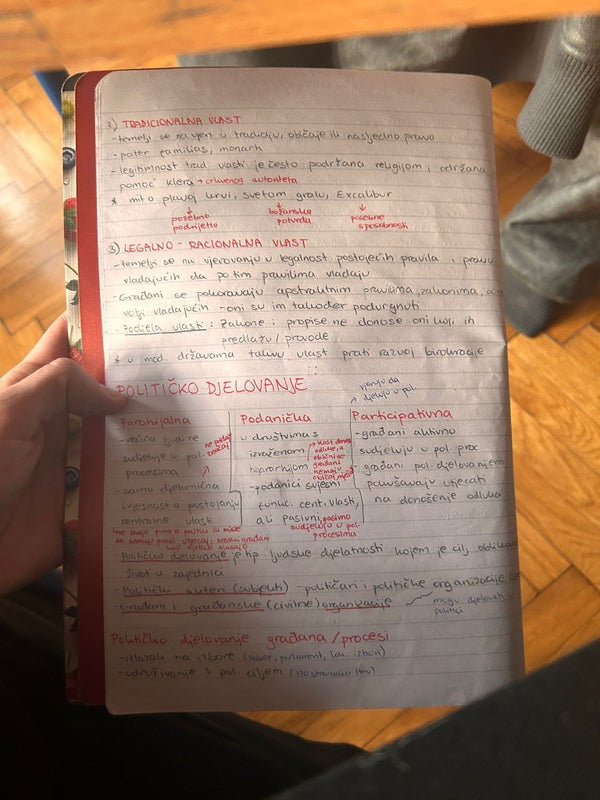 2) TRADICIONALNA VLAST
-temelji se na vjeri u tradiciju, običaje ili nasljedno pravo
-pater familias, monarh
-legitimnost trad. vlasti je često podržana religijom i održana
pomoć klera → crkvenog autoriteta
* mit o plavoj krvi, svetom gralu, Excalibur
posebno podrijetlo
božanska potvrda
posebne sposobnosti
3) LEGALNO - RACIONALNA VLAST
-temelji se na vjerovanju u legalnost postojećih pravila i pravu
vladajućih da po tim pravilima vladaju
-Građani se pokoravaju apstraktnim pravilima, zakonima, a ne
volji vladajućih - oni su im također podvrgnuti
-Podjela vlasti: Zakone i propise ne donose oni koji ih
predlažu / provode
* u mod. državama takvu vlast prati razvoj birokracije
POLITIČKO DJELOVANJE
vjeruju da
djeluju u pol.
Parohijalna
-većina ljudi ne
sudjeluje u pol.
procesima
-samo djelomična
svjesnost o postojanju
centralne vlasti
Podanička
u društvima s
izraženom
hijerarhijom
-podanici svjesni
funkc. cent. vlasti,
ali pasivni, pasivno
sudjeluju u pol.
procesima
→ vlast donosi
odluke, a
obični
građani
nemaju
Participativna
-građani aktivno
sudjeluju u pol. proc
-građani pol. djelovanjem
pokušavaju utjecati
na donošenje odluka
*ne znaju puno o politici ili misle
da nemaju pravo utjecaj, seoski građani
-Političko djelovanje je tip ljudske djelatnosti kojem je cilj
život u zajednici
-Politički akteri (subjekti) - političari i političke organizacije
-Građani i građanske (civilne) organizacije
mogu djelovati u
politici
Političko djelovanje građana/procesi
-izlazak na izbore (sabor, parlament, lok. izbori)
-udruživanje s pol. ciljem